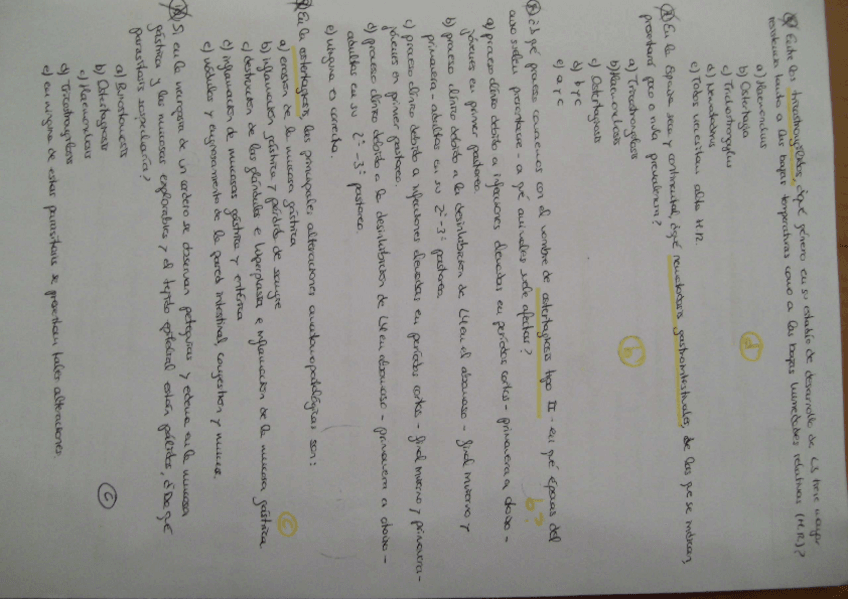 Entre los tricostrongílidos, ¿qué género en su estadio de desarrollo de L3 tiene mayor
resistencia tanto a las bajas temperaturas como a las bajas humedades relativas (H.R)?
a) Haemonchus
b) Ostertagia
c) Trichostrongylus
d) Nematodirus
e) Todos necesitan alta H.R.
d
En la España seca y continental, ¿qué nematodosis gastrointestinales de las que se indican,
presentan poca o nula prevalencia?
a) Tricostrongilosis
b) Haemonchosis
c) Ostertagiosis
d) b y c
e) a y c
b
¿Qué proceso conocemos con el nombre de ostertagiosis tipo II - en qué épocas del
año suelen presentarse - a qué animales suele afectar?
b?
a) proceso clínico debido a infecciones elevadas en períodos cortos - primavera a otoño -
jóvenes en primer pastoreo.
b) proceso clínico debido a la desinhibición de L4 en el abomaso - final invierno y
primavera - adultos en su 2º - 3º pastoreo.
c) proceso clínico debido a infecciones elevadas en períodos cortos - final invierno y primavera -
jóvenes en primer pastoreo.
d) proceso clínico debido a la desinhibición de L4 en abomaso - primavera a otoño -
adultos en su 2º - 3º pastoreo.
e) ninguna es correcta.
En la ostertagiosis, las principales alteraciones anatomopatológicas son:
a) erosión de la mucosa gástrica
b) inflamación gástrica y pérdida de sangre
c) destrucción de las glándulas e hiperplasia e inflamación de la mucosa gástrica
d) inflamación de mucosas gástrica y entérica
e) nódulos y engrosamiento de la pared intestinal, congestión y moco.
c
Si en la necropsia de un cordero se observan petequias y edema en la mucosa
gástrica y las mucosas explorables y el tejido epitelial están pálidas, ¿De qué
parasitosis sospecharía?
a)
b) Ostertagiosis
c) Haemonchosis
d) Tricostrongilosis
e) en ninguna de estas parasitosis se presentan tales alteraciones.
c